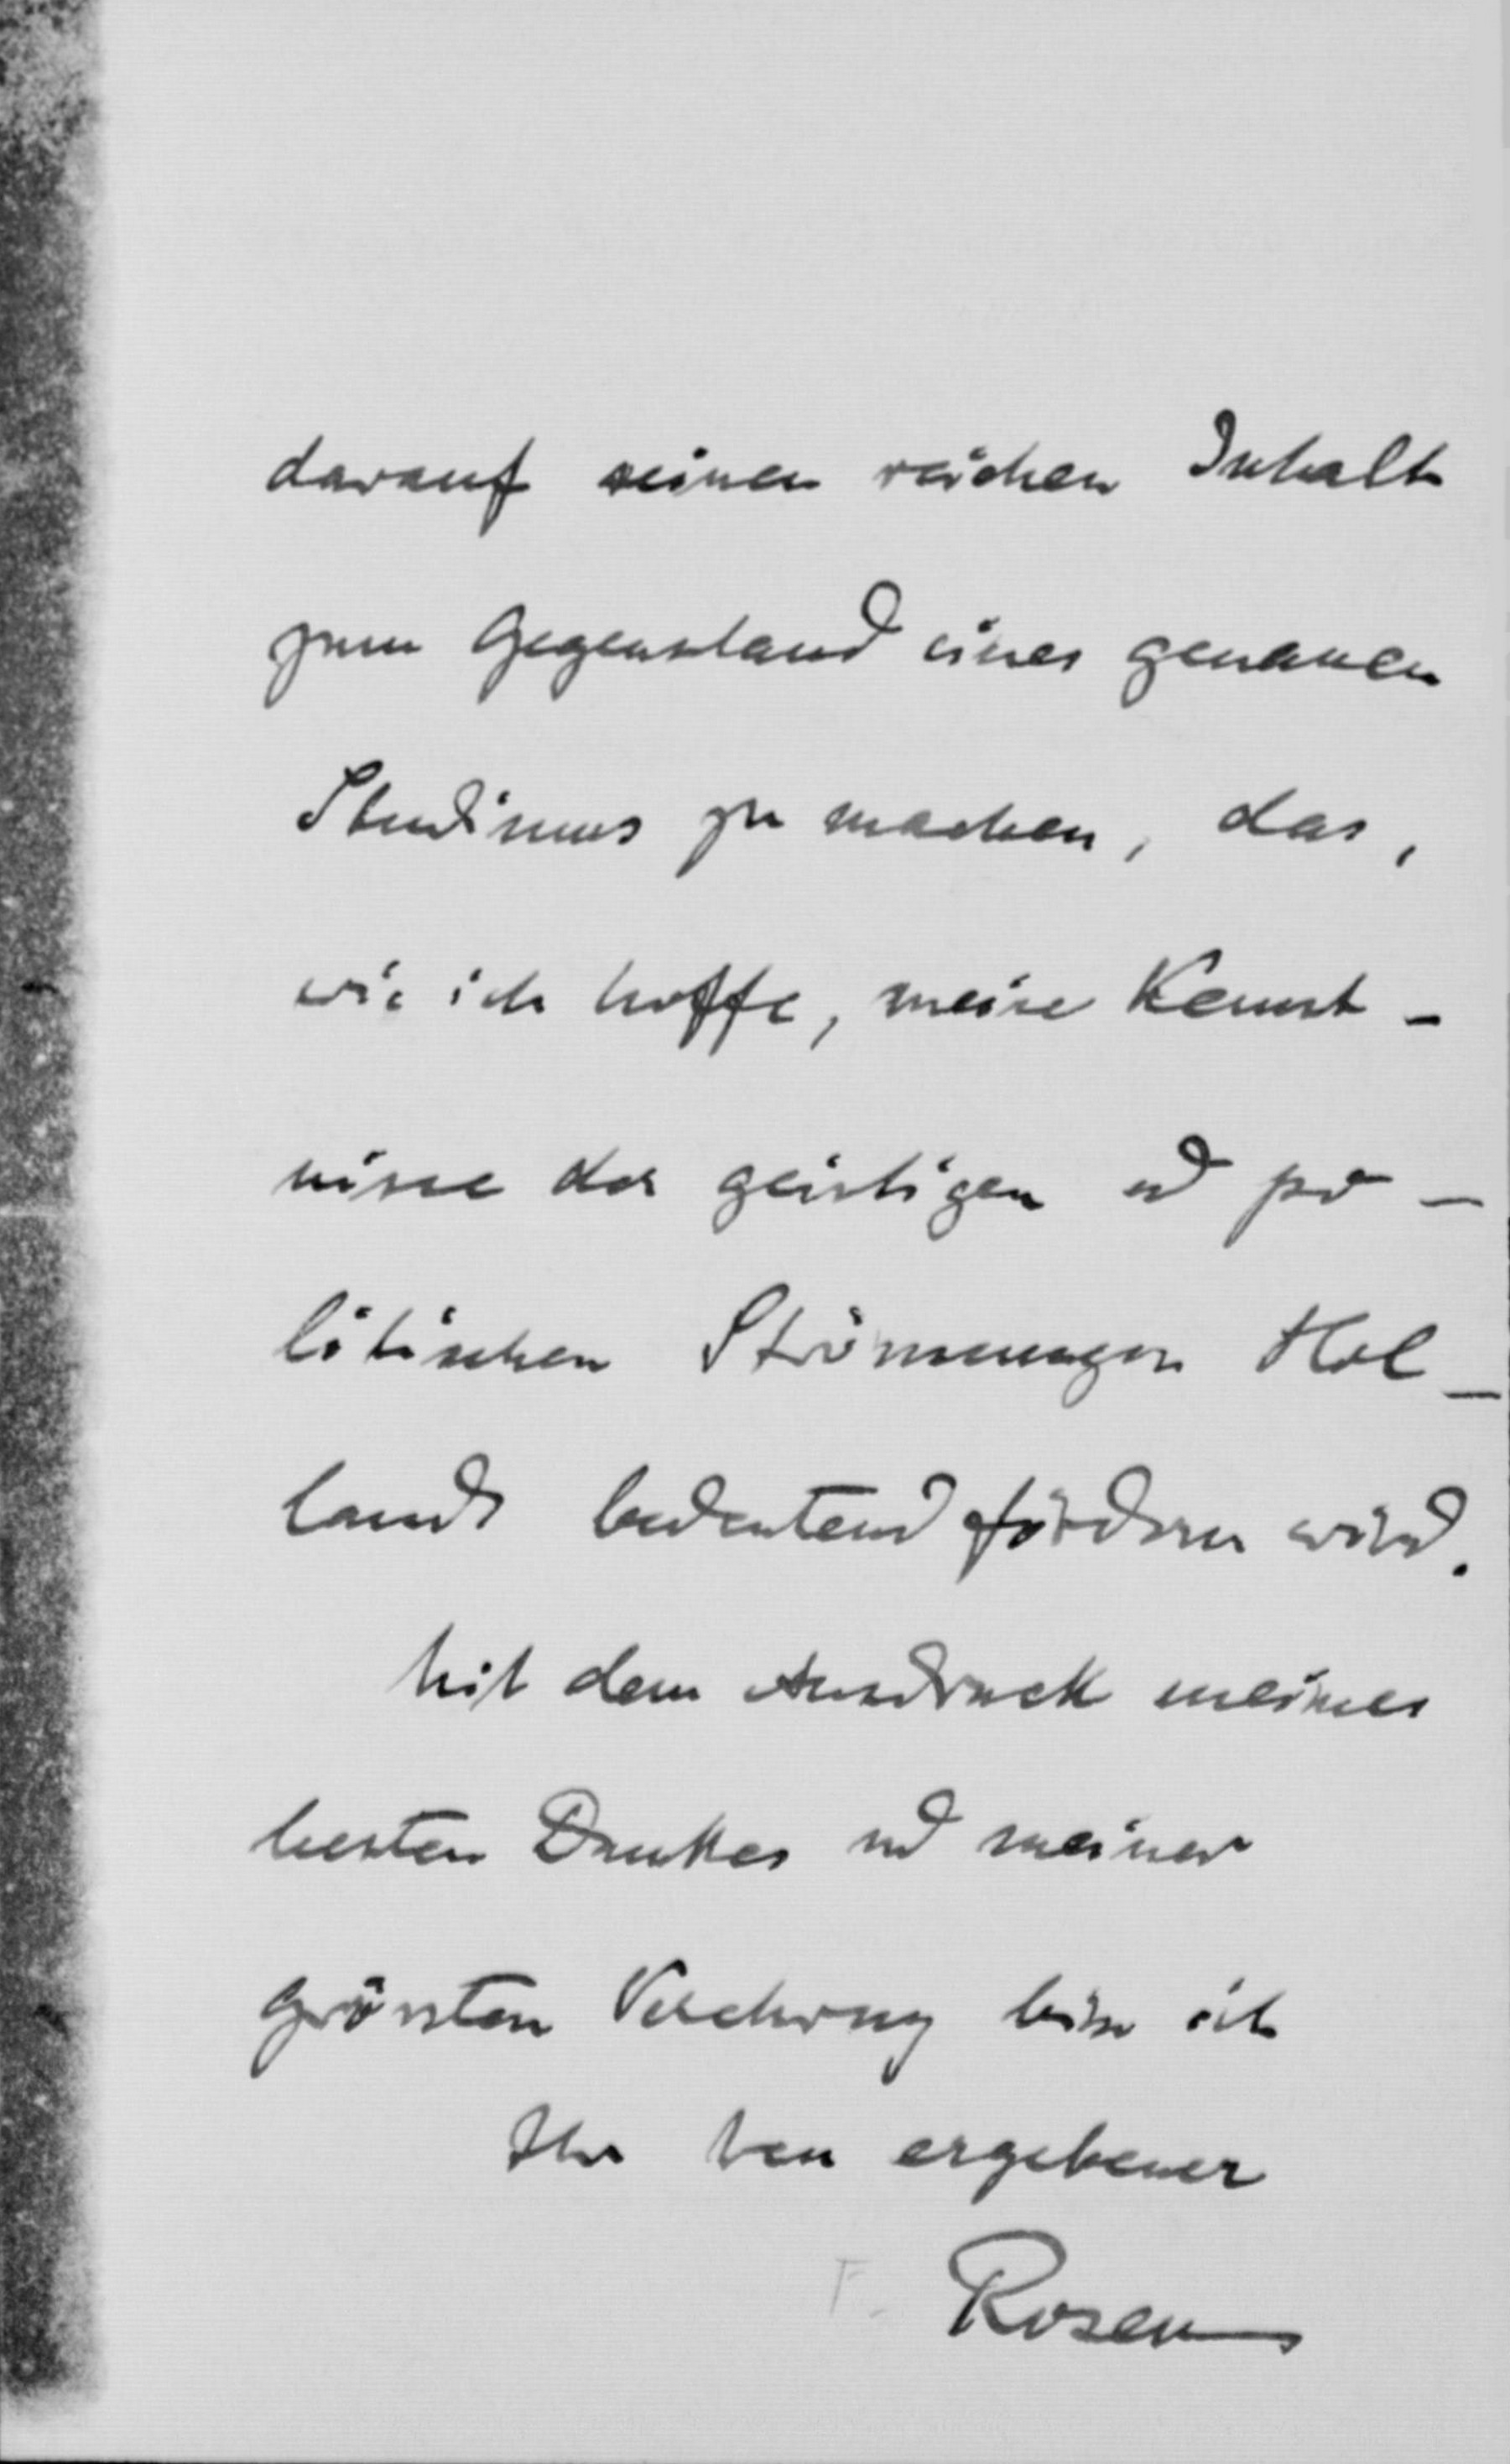 darauf seinen reichen Inhalt
zum Gegenstand eines genauen
Studiums zu machen, das,
wie ich hoffe, meine Kennt-
nisse der geistigen ud po-
litischen Strömungen Hol-
lands bedeutend fördern wird.
Mit dem Ausdruck meines
besten Dankes ud meiner
grössten Verehrung bin ich
Ihr treu ergebener
F. Rosen